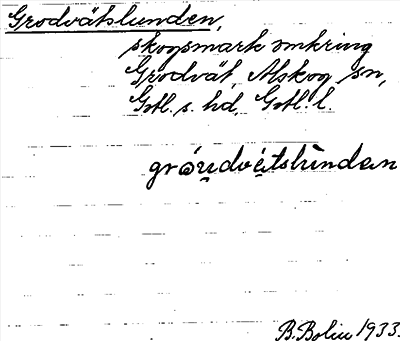 Grodvätslunden,
skogsmark omkring
Grodvät, Alskog sn,
Gotl. s. hd, Gotl. l.
gróu̯dvéi̯tslùnden
B. Bolin 1933.